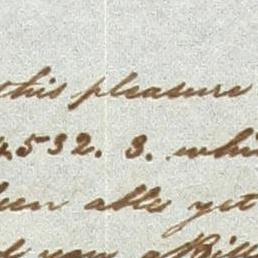 this pleasure
4532. 3. whi
been able yet
your Bill